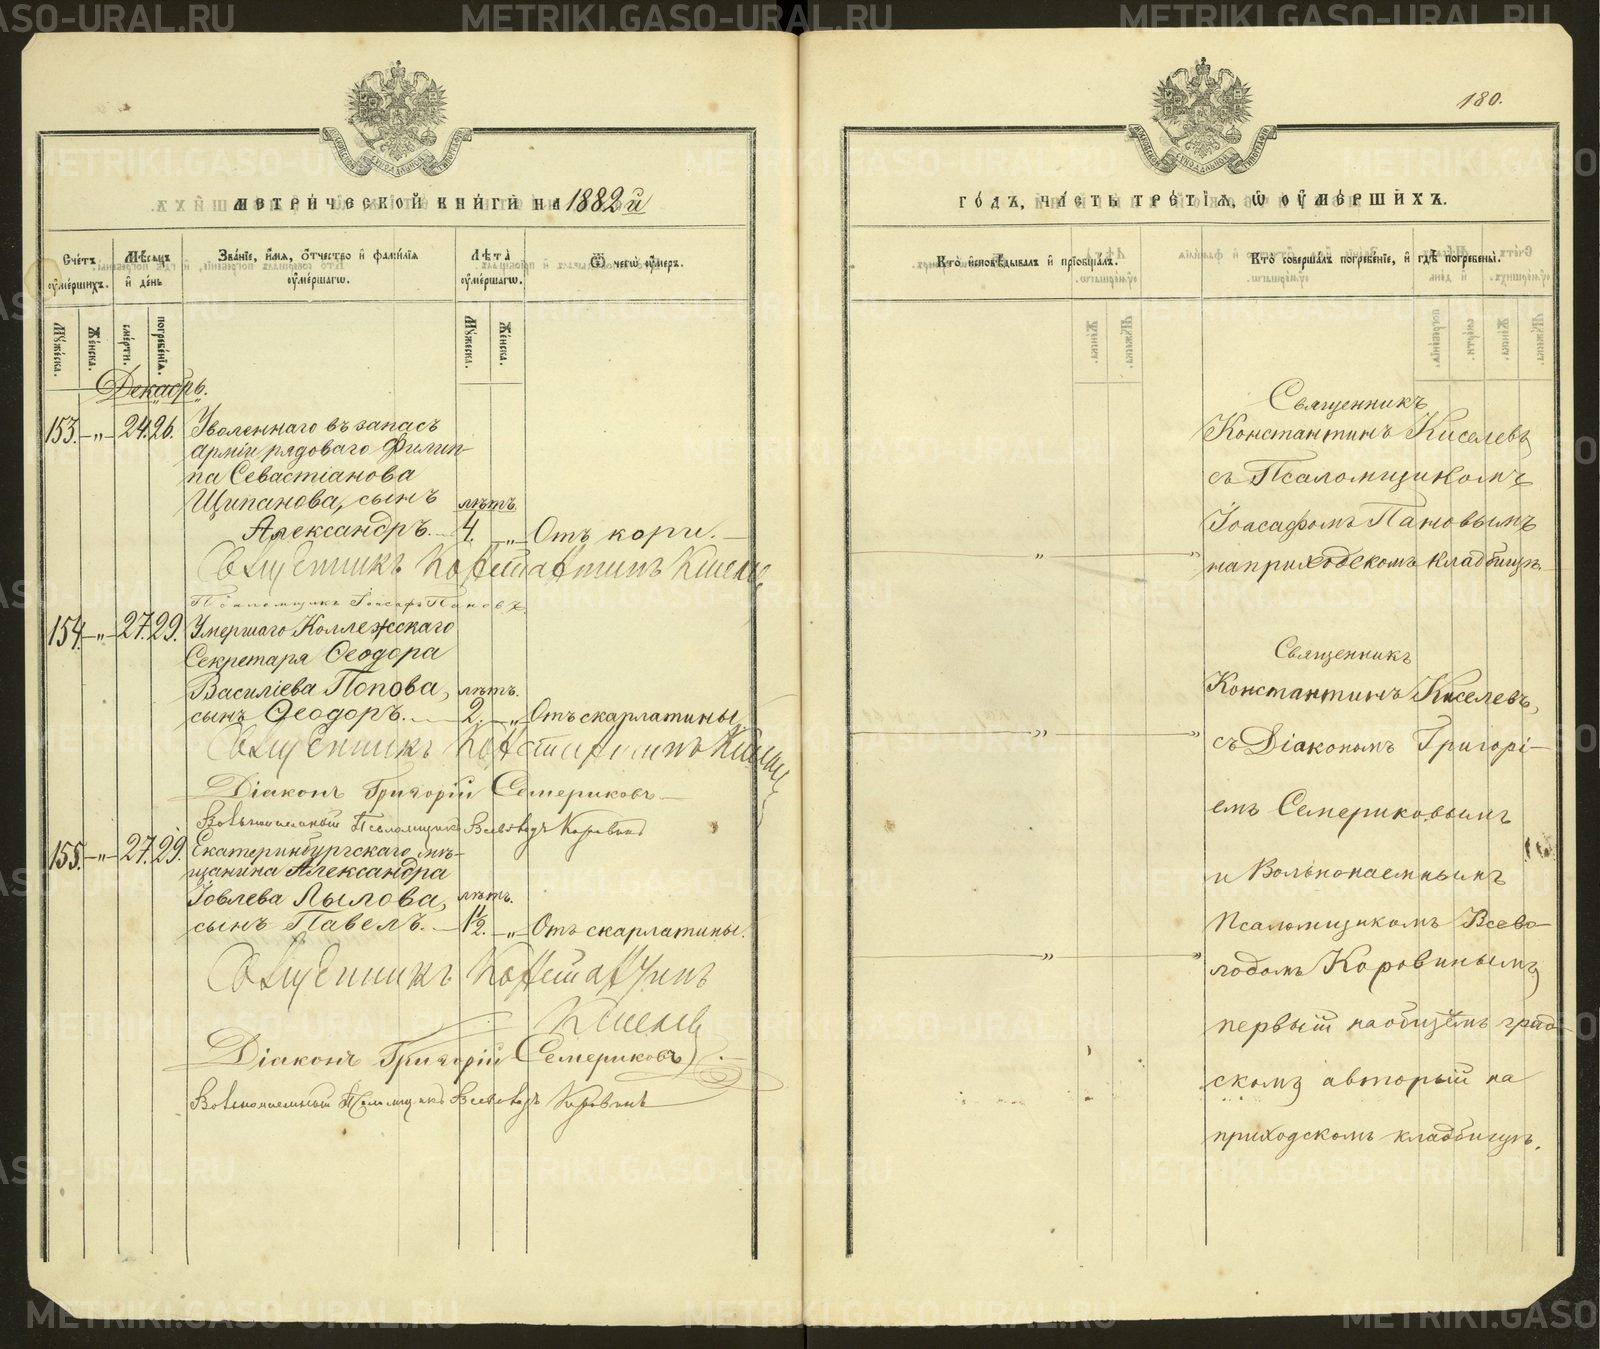 METRIKI.GASO-URAL.RU
180.
МЕТРИ́ЧЕСКОЙ КНИ́ГИ НА 1882й
Сче́тъ оу҆ме́ршихъ.
Мѣ́сѧцъ и҆ день
Зва́нїе, и҆́мѧ, ѻ҆́тчество и҆ фами́лїѧ оу҆ме́ршагѡ.
Лѣ́та оу҆ме́ршагѡ.
Ѿ чегѡ̀ оу҆́меръ.
Мꙋ́жеска.
Же́нска.
сме́рти.
погребе́нїѧ.
Мꙋ́жеска.
Же́нска.
Декабрь.
153. „ 24. 26. Уволеннаго въ запасъ
арміи рядоваго Филип-
па Севастіанова
Щипанова, сынъ лѣтъ.
Александръ. 4. „ Отъ кори.
Священникъ Константинъ Киселев
Псаломщикъ Іоасафъ Пановъ.
154. „ 27. 29. Умершаго Коллежскаго
Секретаря Ѳеодора
Василіева Попова, лѣтъ.
сынъ Ѳеодоръ. 2. „ Отъ скарлатины.
Священникъ Константинъ Киселев
Діаконъ Григорій Семериковъ
Вольнонаемный Псаломщикъ Всеволодъ Коровинъ
155. „ 27. 29. Екатеринбургскаго мѣ-
щанина Александра
Іовлева Лылова, лѣтъ.
сынъ Павелъ. 1½. „ Отъ скарлатины.
Священникъ Константинъ
Киселев
Діаконъ Григорій Семериковъ
Вольнонаемный Псаломщикъ Всеволодъ Коровинъ
ГО́ДЪ, ЧА́СТЬ ТРЕ́ТЇѦ, Ѡ҆ ОУ҆МЕ́РШИХЪ.
Кто̀ и҆сповѣ́дывалъ и҆ прїобща́лъ.
Кто̀ соверша́лъ погребе́нїе, и҆ гдѣ̀ погребены̀.
Священникъ
Константинъ Киселевъ
съ Псаломщикомъ
Іоасафомъ Пановымъ
„ „ на приходскомъ кладбищѣ.
Священникъ
Константинъ Киселевъ,
„ „ съ Діакономъ Григорі-
емъ Семериковымъ
и Вольнонаемнымъ
Псаломщикомъ Всево-
„ „ лодомъ Коровинымъ
первый на общемъ град-
скомъ а вторый на
приходскомъ кладбищѣ.